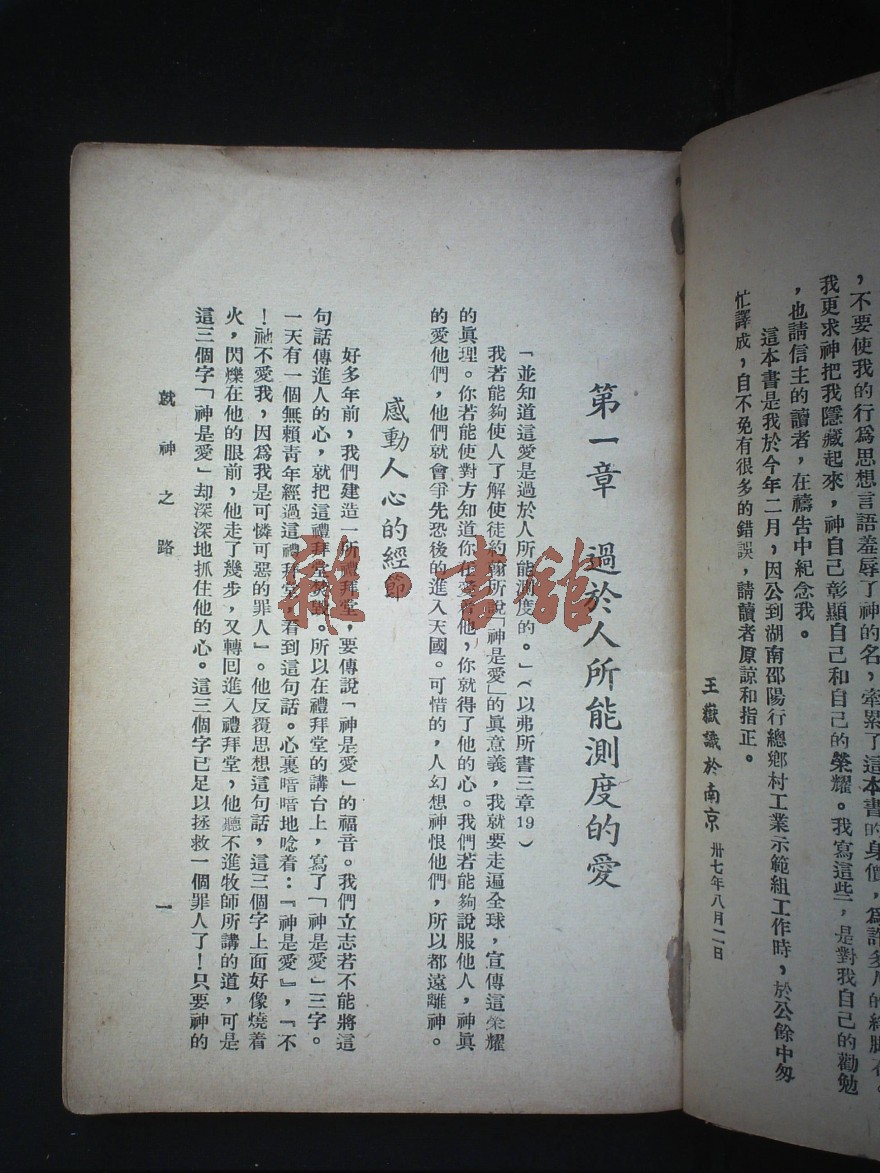 ，不要使我的行爲思想言語羞辱了神的名，牽累了這本書的身價，爲許多人的絆脚石。
我更求神把我隱藏起來，神自己彰顯自己和自己的榮耀。我寫這些，是對我自己的勸勉
，也請信主的讀者，在禱告中紀念我。
這本書是我於今年二月，因公到湖南邵陽行總鄉村工業示範組工作時，於公餘中匆
忙譯成，自不免有很多的錯誤，請讀者原諒和指正。
王嶽識於南京 卅七年八月二日
第一章 過於人所能測度的愛
「並知道這愛是過於人所能測度的。」（以弗所書三章19）
我若能夠使人了解使徒約翰所說「神是愛」的眞意義，我就要走遍全球，宣傳這榮耀
的眞理。你若能使對方知道你在愛着他，你就得了他的心。我們若能夠說服他人，神眞
的愛他們，他們就會爭先恐後的進入天國。可惜的，人幻想神恨他們，所以都遠離神。
感動人心的經節
好多年前，我們建造一所禮拜堂，要傳說「神是愛」的福音。我們立志若不能將這
句話傳進人的心，就把這禮拜堂焚毀。所以在禮拜堂的講台上，寫了「神是愛」三字。
一天有一個無賴靑年經過這禮拜堂，看到這句話。心裏暗暗地唸着：『神是愛』，『不
！祂不愛我，因爲我是可憐可惡的罪人』。他反覆思想這句話，這三個字上面好像燒着
火，閃爍在他的眼前，他走了幾步，又轉回進入禮拜堂，他聽不進牧師所講的道，可是
這三個字「神是愛」却深深地抓住他的心。這三個字已足以拯救一個罪人了！只要神的
就神之路
一
雜·書館